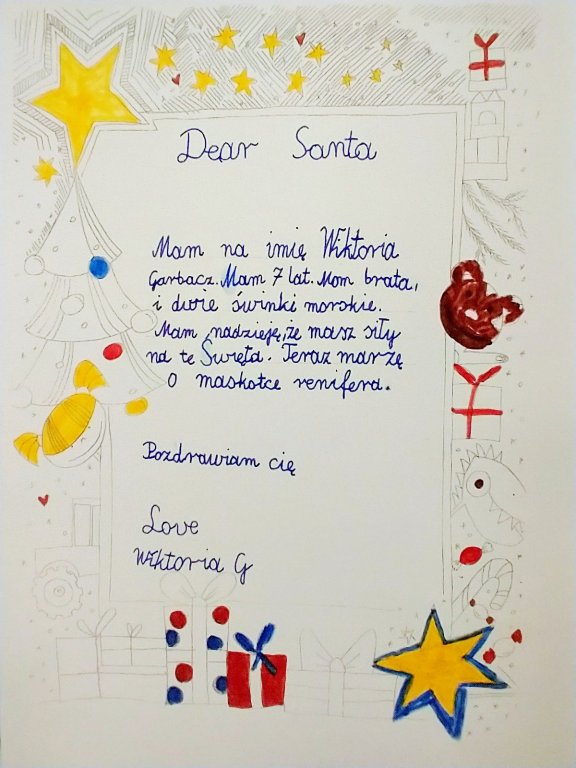 Dear Santa
Mam na imię Wiktoria
Garbacz. Mam 7 lat. Mam brata,
i dwie świnki morskie.
Mam nadzieję, że masz siły
na te Święta. Teraz marzę
o maskotce renifera.
Pozdrawiam cię
Love
Wiktoria G